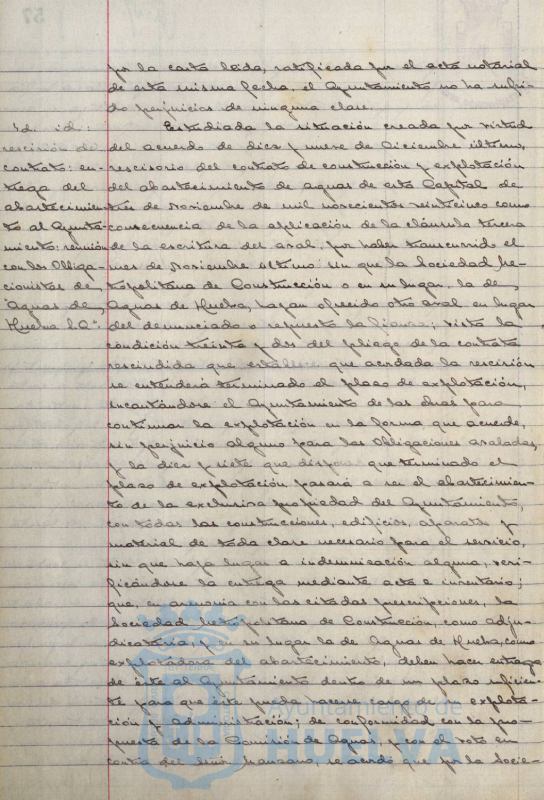 por la carta leida, ratificada por el acta notarial
de esta misma fecha, el Ayuntamiento no ha sufri-
do perjuicios de ninguna clase.
Id. id:
rescisión de
contrato: en-
trega del
abastecimien-
to al Ayunta-
miento: reunión
con los Obliga-
cionistas de
Aguas de
Huelva S.A.
Estudiada la situación creada por virtud
del acuerdo de diez y nueve de Diciembre último,
rescisorio del contrato de construcción y explotación
del abastecimiento de aguas de esta Capital de
tres de Noviembre de mil novecientos veinticinco como
consecuencia de la aplicación de la cláusula tercera
de la escritura del aval, por haber transcurrido el
mes de Noviembre último sin que la Sociedad Me-
tropolitana de Construcción o en su lugar la de
Aguas de Huelva, hayan ofrecido otro aval en lugar
del denunciado o repuesto la fianza; vista la
condición treinta y dos del pliego de la contrata
rescindida que establece que acordada la rescisión
se entenderá terminado el plazo de explotación,
incautándose el Ayuntamiento de las obras para
continuar la explotación en la forma que acuerde,
sin perjuicio alguno para las Obligaciones avaladas,
y la diez y siete que dispone que terminado el
plazo de explotación pasará a ser el abastecimien-
to de la exclusiva propiedad del Ayuntamiento,
con todas las construcciones, edificios, aparatos y
material de toda clase necesario para el servicio,
sin que haya lugar a indemnización alguna, veri-
ficándose la entrega mediante acta e inventario;
que, en armonia con las citadas prescripciones, la
Sociedad Metropolitana de Construcción, como adju-
dicataria, y en su lugar la de Aguas de Huelva, como
explotadora del abastecimiento, deben hacer entrega
de éste al Ayuntamiento dentro de un plazo suficien-
te para que éste pueda hacerse cargo de su explota-
ción y administración; de conformidad con la pro-
puesta de la Comisión de Aguas, y con el voto en
contra del Señor Manzano, se acordó que por la Socie-
Ayuntamiento de
HUELVA